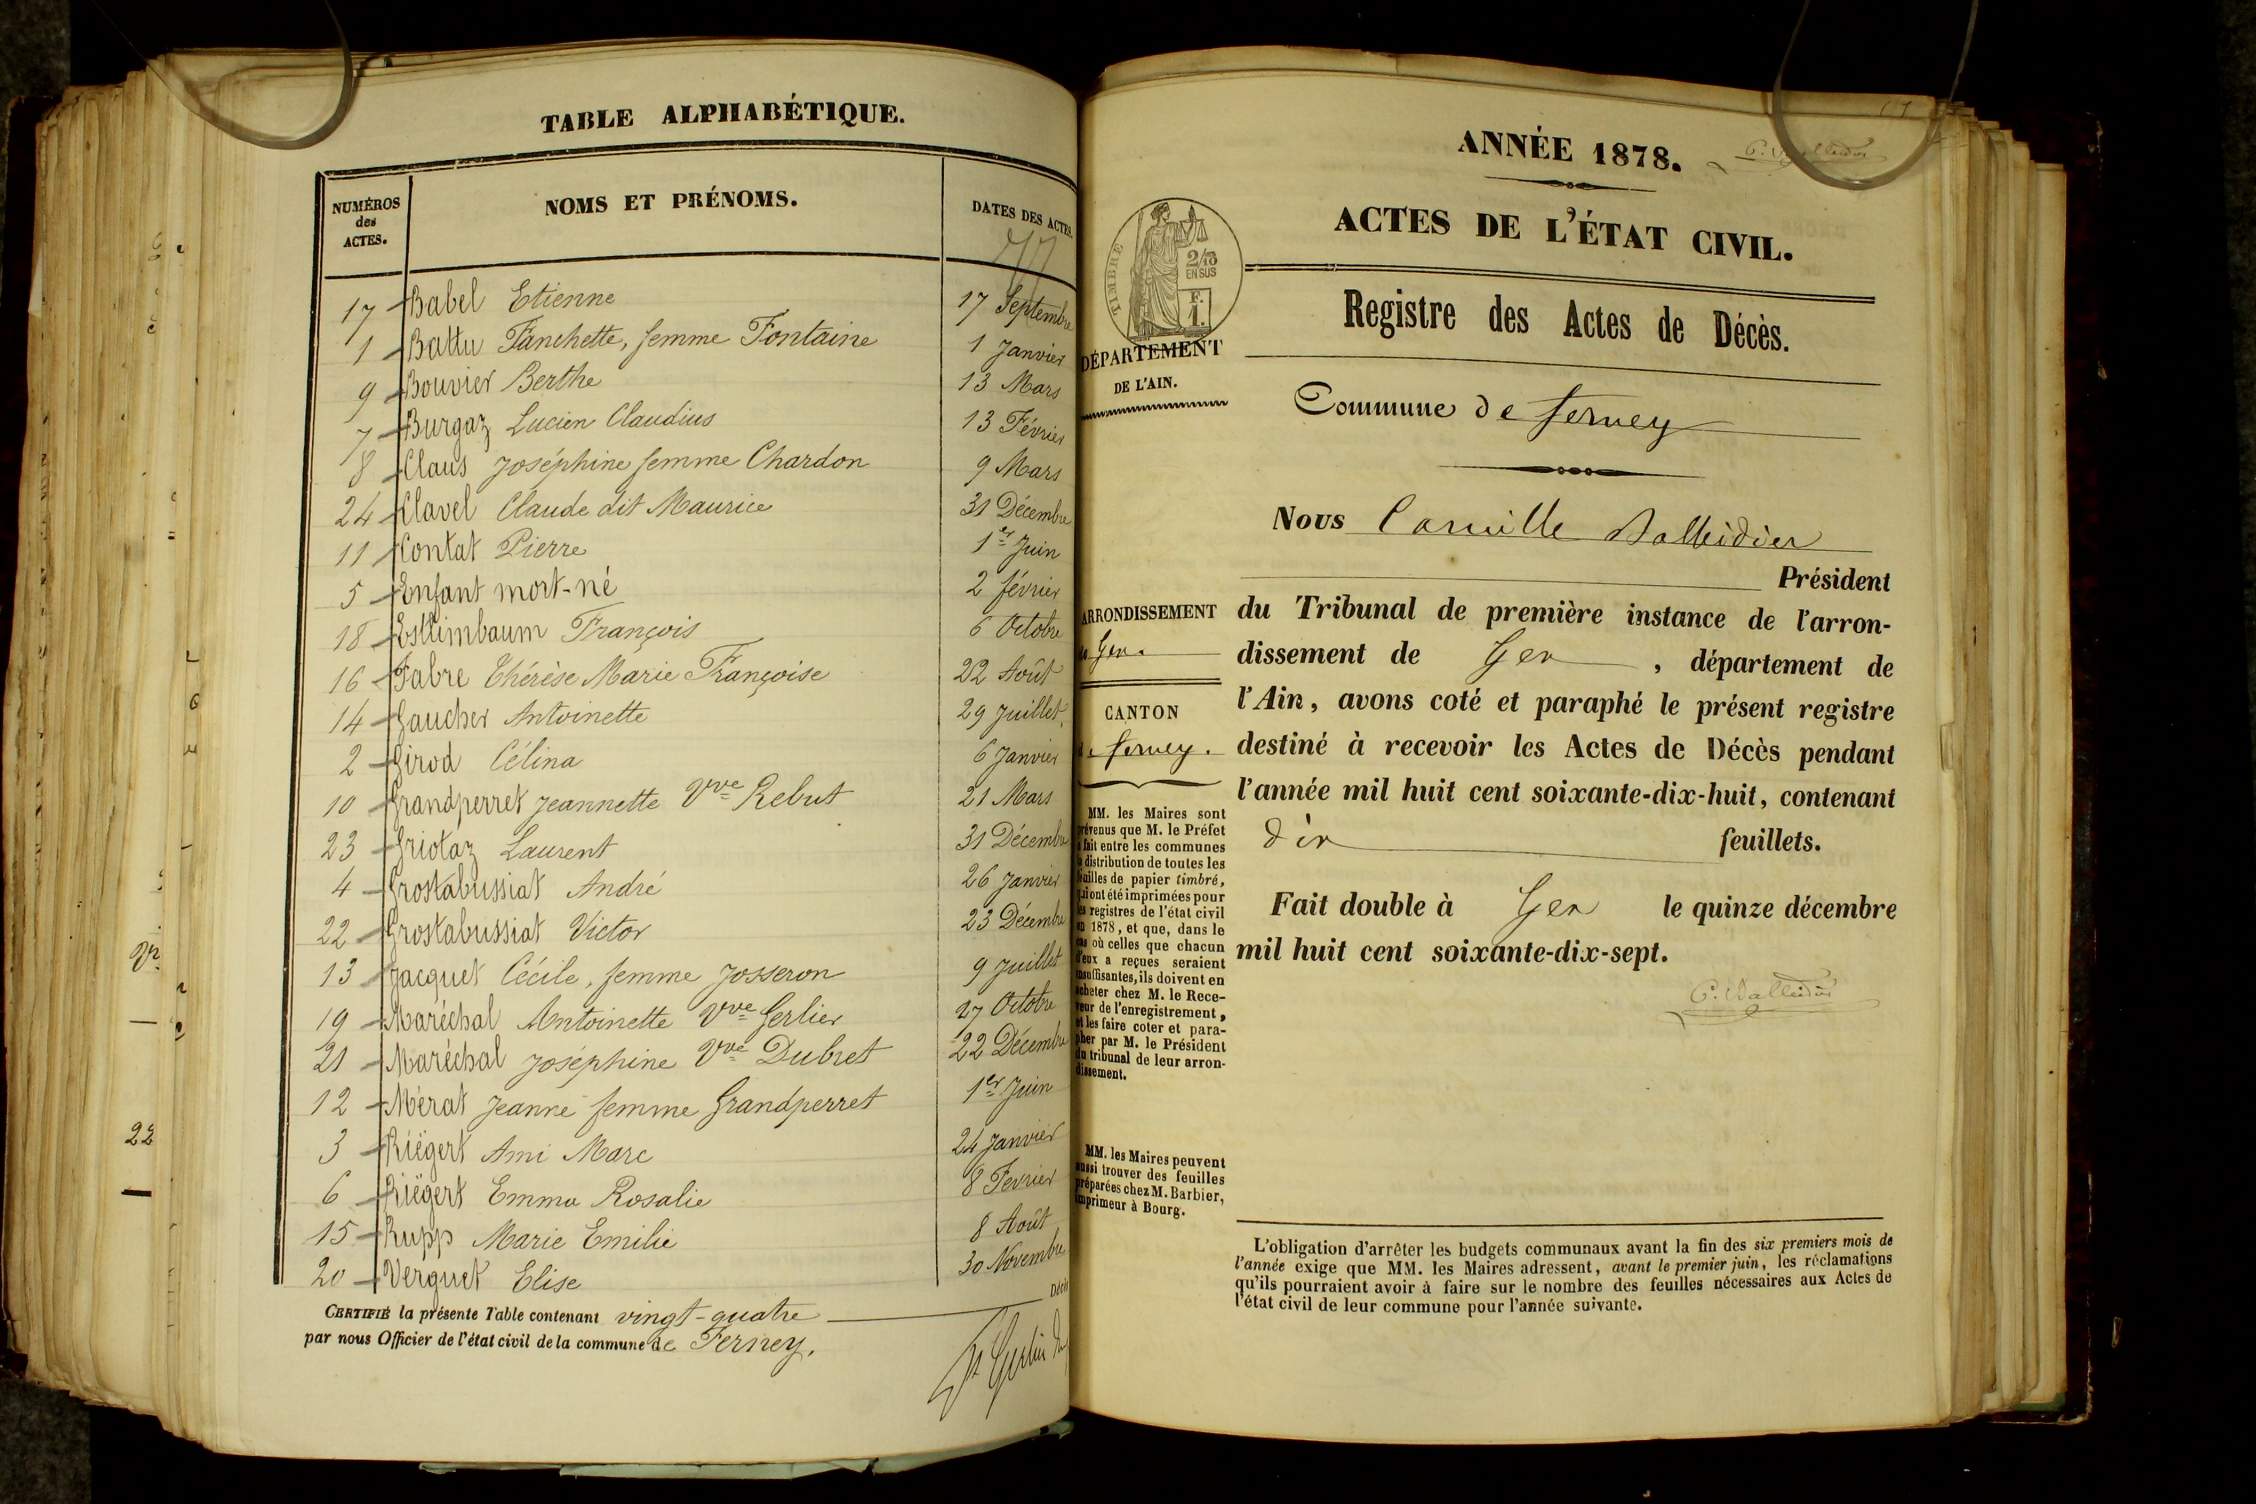 TABLE ALPHABÉTIQUE.
NUMÉROS des ACTES.
NOMS ET PRÉNOMS.
DATES DES ACTES.
17 Babel Etienne 17 Septembre
1 Battu Fanchette, femme Fontaine 1 Janvier
9 Bouvier Berthe 13 Mars
7 Burgaz Lucien Claudius 13 Février
8 Claus Joséphine femme Chardon 9 Mars
24 Clavel Claude dit Maurice 31 Décembre
11 Contat Pierre 1er Juin
5 Enfant mort-né 2 février
18 Estlimbaum François 6 Octobre
16 Fabre Thérèse Marie Françoise 22 Août
14 Gaucher Antoinette 29 Juillet
2 Girod Célina 6 Janvier
10 Grandperret Jeannette Vve Rebut 21 Mars
23 Griotaz Laurent 31 Décembre
4 Grostabussiat André 26 Janvier
22 Grostabussiat Victor 23 Décembre
13 Jacquet Cécile, femme Josseron 9 Juillet
19 Maréchal Antoinette Vve Gerlier 27 Octobre
21 Maréchal Joséphine Vve Dubret 22 Décembre
12 Mérat Jeanne femme Grandperret 1er Juin
3 Riëgert Ami Marc 24 Janvier
6 Riëgert Emma Rosalie 8 Fevrier
15 Rupp Marie Emilie 8 Août
20 Verguet Elise 30 Novembre
CERTIFIÉ la présente Table contenant vingt-quatre
par nous Officier de l'état civil de la commune de Ferney.
22
ANNÉE 1878.
ACTES DE L'ÉTAT CIVIL.
TIMBRE
2/10 EN SUS
F. 1.
Registre des Actes de Décès.
DÉPARTEMENT
DE L'AIN.
Commune de ferney
Nous Camille Balleidier
Président
ARRONDISSEMENT
de Gex.
CANTON
de ferney.
du Tribunal de première instance de l'arron-
dissement de Gex, département de
l'Ain, avons coté et paraphé le présent registre
destiné à recevoir les Actes de Décès pendant
l'année mil huit cent soixante-dix-huit, contenant
dix feuillets.
Fait double à Gex le quinze décembre
mil huit cent soixante-dix-sept.
C. Balleidier
MM. les Maires sont
prévenus que M. le Préfet
a fait entre les communes
la distribution de toutes les
feuilles de papier timbré,
qui ont été imprimées pour
les registres de l'état civil
en 1878, et que, dans le
cas où celles que chacun
d'eux a reçues seraient
insuffisantes, ils doivent en
acheter chez M. le Rece-
veur de l'enregistrement,
et les faire coter et para-
pher par M. le Président
du tribunal de leur arron-
dissement.
MM. les Maires peuvent
aussi trouver des feuilles
préparées chez M. Barbier,
imprimeur à Bourg.
L'obligation d'arrêter les budgets communaux avant la fin des six premiers mois de
l'année exige que MM. les Maires adressent, avant le premier juin, les réclamations
qu'ils pourraient avoir à faire sur le nombre des feuilles nécessaires aux Actes de
l'état civil de leur commune pour l'année suivante.